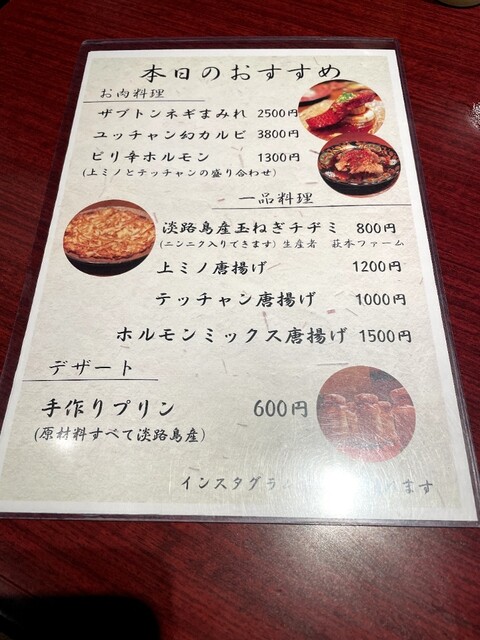 本日のおすすめ
お肉料理
ザブトンネギまみれ 2500円
ユッチャン幻カルビ 3800円
ピリ辛ホルモン 1300円
(上ミノとテッチャンの盛り合わせ)
一品料理
淡路島産玉ねぎチヂミ 800円
(ニンニク入りできます) 生産者 萩本ファーム
上ミノ唐揚げ 1200円
テッチャン唐揚げ 1000円
ホルモンミックス唐揚げ 1500円
デザート
手作りプリン 600円
(原材料すべて淡路島産)
インスタグラ ます